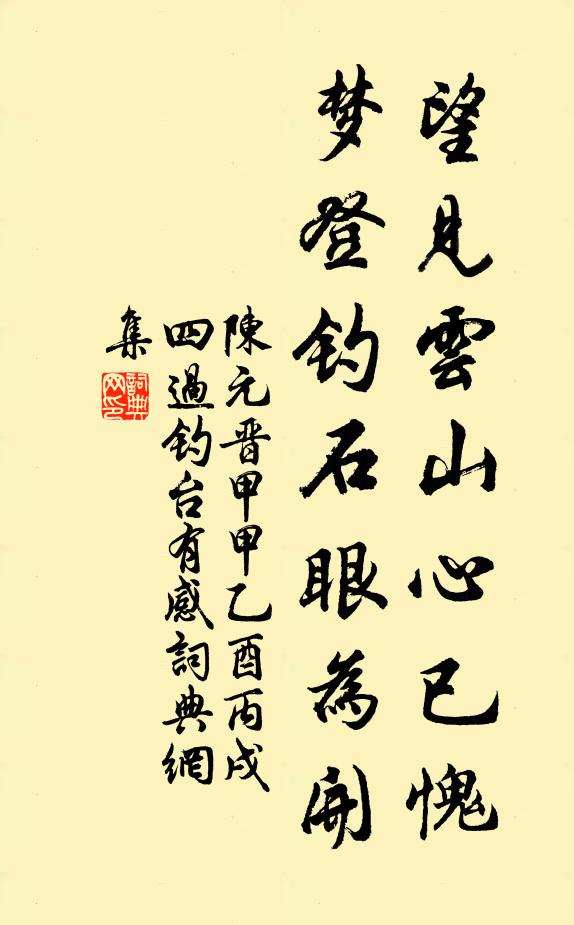 望見雲山心已愧
梦登钓石眼為開
陳元晋甲甲乙酉丙戌
四過钓台有感詞典網
集
詞典
网印